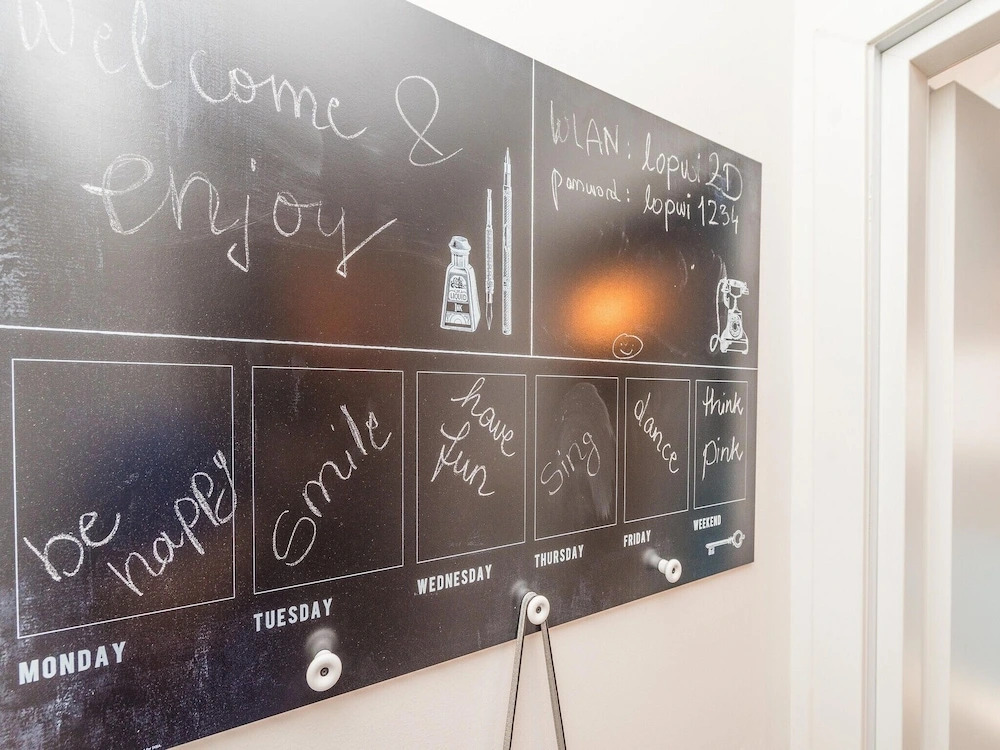 Welcome &
enjoy
WLAN: lopwi2D
password: lopwi1234
LIQUID
INK
be
happy
smile
have
fun
sing
dance
think
pink
MONDAY
TUESDAY
WEDNESDAY
THURSDAY
FRIDAY
WEEKEND